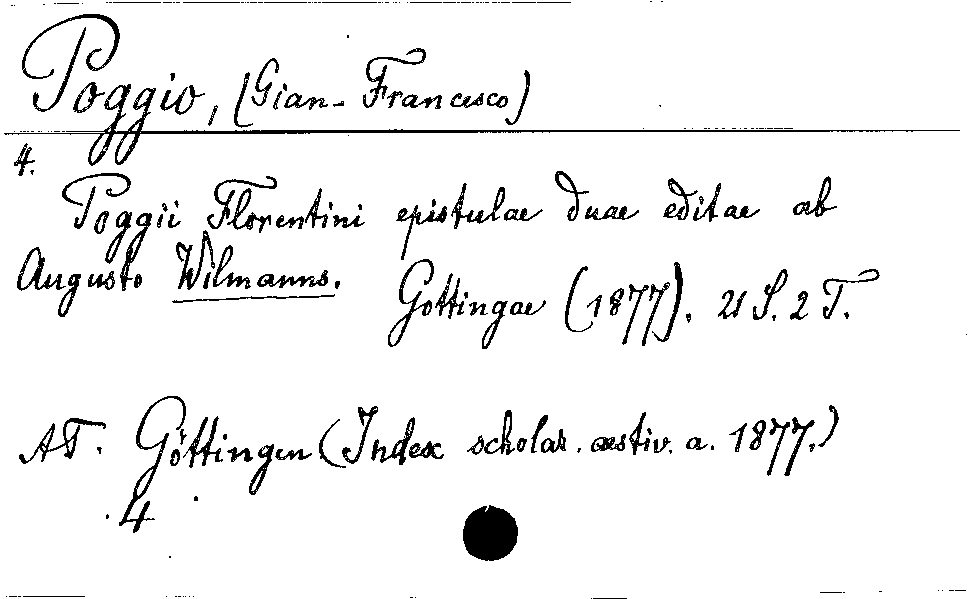 Poggio, (Gian-Francesco)
4.
Poggii Florentini epistulae duae editae ab
Augusto Wilmanns. Gottingae (1877). 21 S. 2 T.
AT. Göttingen (Index scholar. aestiv. a. 1877.)
4